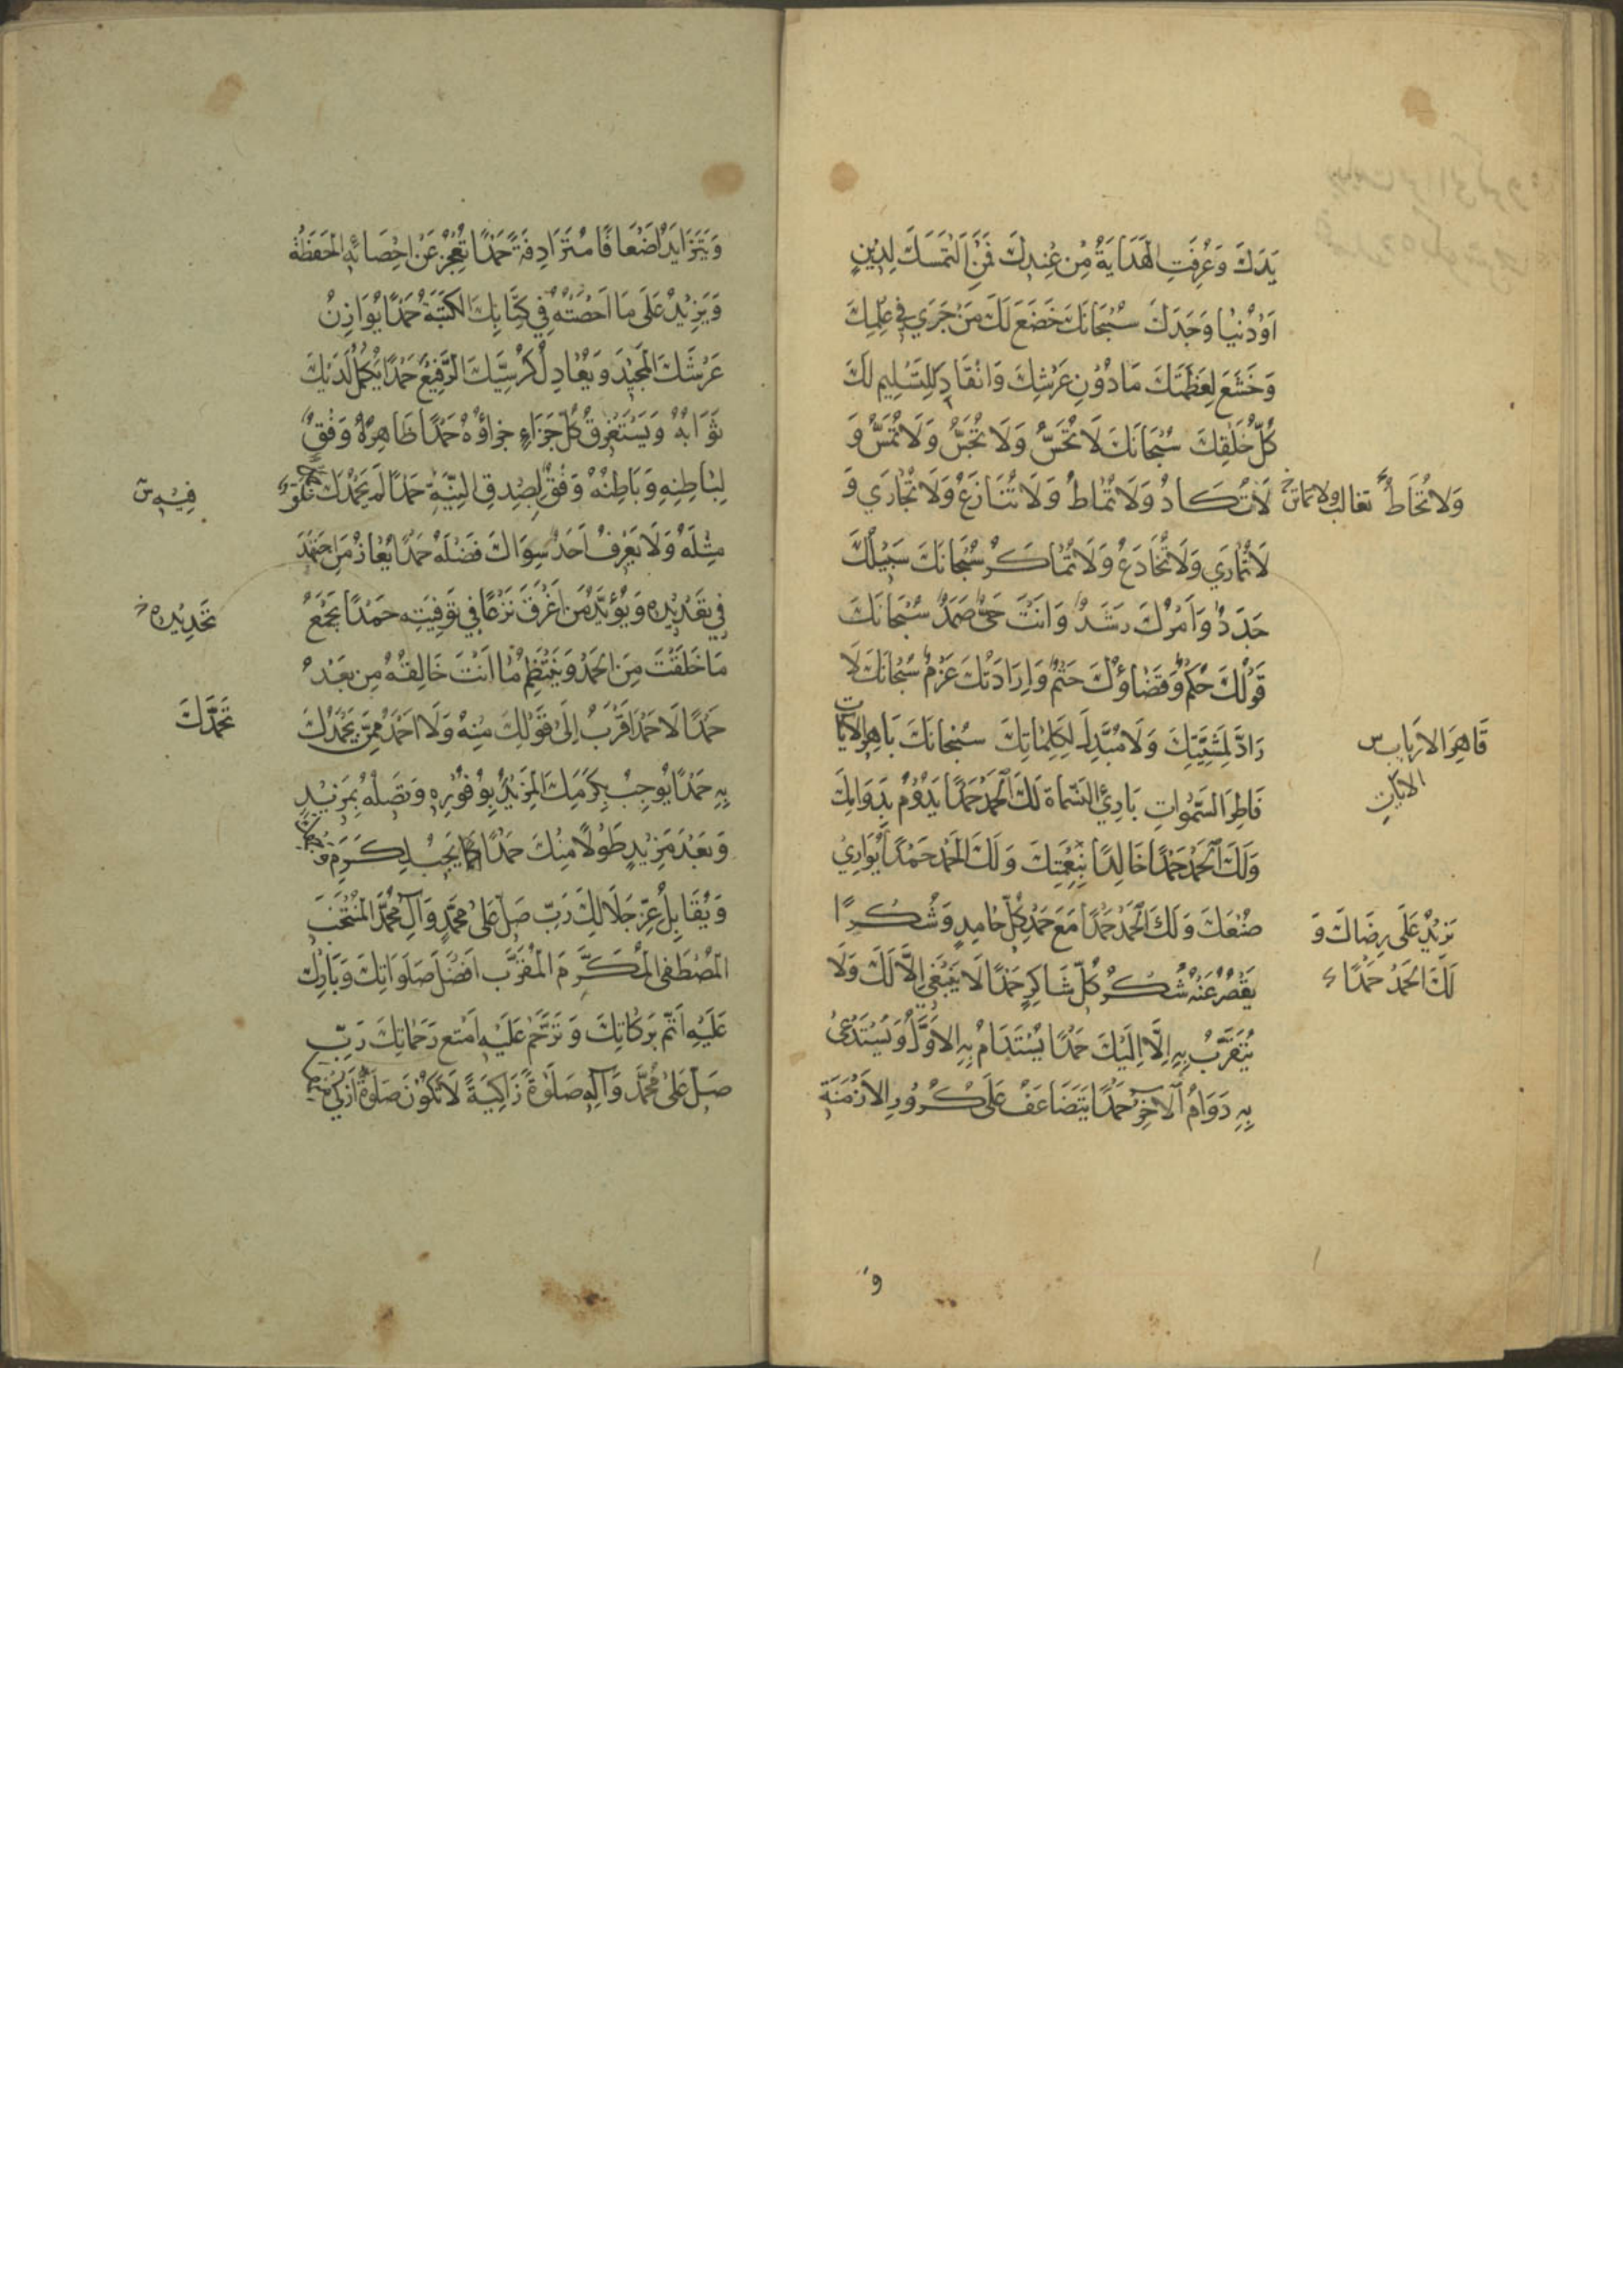 يَدَكَ وَعُرِفَتِ الْهِدَايَةُ مِنْ عِنْدِكَ فَمَنِ الْتَمَسَكَ لِدِينٍ
اَوْ دُنْيَا وَجَدَكَ سُبْحَانَكَ خَضَعَ لَكَ مَنْ جَرَي فِي عِلْمِكَ
وَخَشَعَ لِعَظَمَتِكَ مَا دُوْنَ عَرْشِكَ وَانْقَادَ لِلتَّسْلِيمِ لَكَ
كُلُّ خَلْقِكَ سُبْحَانَكَ لَا تُحَسُّ وَلَا تُجَسُّ وَلَا تُمَسُّ وَ
لَا تُكَادُ وَلَا تُمَاطُ وَلَا تُنَازَعُ وَلَا تُجَارَي وَ
وَلَا تُحَاطُ
لَا تُمَارَي وَلَا تُخَادَعُ وَلَا تُمَاكَرُ سُبْحَانَكَ سَبِيْلُكَ
جَدَدٌ وَاَمْرُكَ رَشَدٌ وَاَنْتَ حَيٌّ صَمَدٌ سُبْحَانَكَ
قَوْلُكَ حُكْمٌ وَقَضَاؤُكَ حَتْمٌ وَاِرَادَتُكَ عَزْمٌ سُبْحَانَكَ لَا
رَادَّ لِمَشِيَّتِكَ وَلَا مُبَدِّلَ لِكَلِمَاتِكَ سُبْحَانَكَ بَاهِرَ الْاٰيَاتِ
قَاهِرَ الْاَرْبَابِ س
الايات
فَاطِرَ السَّمٰوَاتِ بَارِئَ النَّسَمَاةِ لَكَ الْحَمْدُ حَمْدًا يَدُوْمُ بِدَوَامِكَ
وَلَكَ الْحَمْدُ حَمْدًا خَالِدًا بِنِعْمَتِكَ وَلَكَ الْحَمْدُ حَمْدًا يُوَازِيْ
صُنْعَكَ وَلَكَ الْحَمْدُ حَمْدًا مَعَ حَمْدِ كُلِّ حَامِدٍ وَشُكْرًا
يَزِيْدُ عَلَى رِضَاكَ وَ
لَكَ الْحَمْدُ حَمْدًا
يَقْصُرُ عَنْهُ شُكْرُ كُلِّ شَاكِرٍ حَمْدًا لَا يَنْبَغِي اِلَّا لَكَ وَلَا
يُتَقَرَّبُ بِهِ اِلَّا اِلَيْكَ حَمْدًا يُسْتَدَامُ بِهِ الْاَوَّلُ وَيُسْتَدْعٰى
بِهِ دَوَامُ الْآخِرِ حَمْدًا يَتَضَاعَفُ عَلَى كُرُوْرِ الْاَزْمِنَةِ
و
وَيَتَزَايَدُ اَضْعَافًا مُتَرَادِفَةً حَمْدًا تَعْجِزُ عَنْ اِحْصَائِهِ الْحَفَظَةُ
وَيَزِيْدُ عَلَى مَا اَحْصَتْهُ فِي كِتَابِكَ الْكَتَبَةُ حَمْدًا يُوَازِنُ
عَرْشَكَ الْمَجِيْدَ وَيُعَادِلُ كُرْسِيَّكَ الرَّفِيْعَ حَمْدًا يَكْمُلُ لَدَيْكَ
ثَوَابُهُ وَيَسْتَغْرِقُ كُلَّ جَزَاءٍ جَزَاؤُهُ حَمْدًا ظَاهِرُهُ وَفْقٌ
لِبَاطِنِهِ وَبَاطِنُهُ وَفْقٌ لِصِدْقِ النِّيَّةِ حَمْدًا لَمْ يَحْمَدْكَ خَلْقٌ
فِيْهِ س
مِثْلَهُ وَلَا يَعْرِفُ اَحَدٌ سِوَاكَ فَضْلَهُ حَمْدًا يُعَانُ مَنِ اجْتَهَدَ
فِي تَعْدِيْدِهِ وَيُؤَيَّدُ مَنْ اَغْرَقَ نَزْعًا فِي تَوْفِيَتِهِ حَمْدًا يَجْمَعُ
تَحْدِيْدِهِ خ
مَا خَلَقْتَ مِنَ الْحَمْدِ وَيَنْتَظِمُ مَا اَنْتَ خَالِقُهُ مِنْ بَعْدُ
حَمْدًا لَا حَمْدَ اَقْرَبُ اِلَى قَوْلِكَ مِنْهُ وَلَا اَحْمَدَ مِمَّنْ يَحْمَدُكَ
بِهِ حَمْدًا يُوجِبُ بِكَرَمِكَ الْمَزِيْدَ بِوُفُوْرِهِ وَتَصِلُهُ بِمَزِيْدٍ
وَبَعْدَ مَزِيْدٍ طَوْلًا مِنْكَ حَمْدًا كَمَا يَجِبُ لِكَرَمِ وَجْهِكَ
وَيُقَابِلُ عِزَّ جَلَالِكَ رَبِّ صَلِّ عَلٰى مُحَمَّدٍ وَآلِ مُحَمَّدٍ الْمُنْتَجَبِ
الْمُصْطَفَى الْمُكَرَّمِ الْمُقَرَّبِ اَفْضَلَ صَلَوَاتِكَ وَبَارِكْ
عَلَيْهِ اَتَمَّ بَرَكَاتِكَ وَتَرَحَّمْ عَلَيْهِ اَمْتَعَ رَحَمَاتِكَ رَبِّ
صَلِّ عَلٰى مُحَمَّدٍ وَآلِهِ صَلٰوةً زَاكِيَةً لَا تَكُوْنُ صَلٰوةٌ اَزْكٰى مِنْهَا